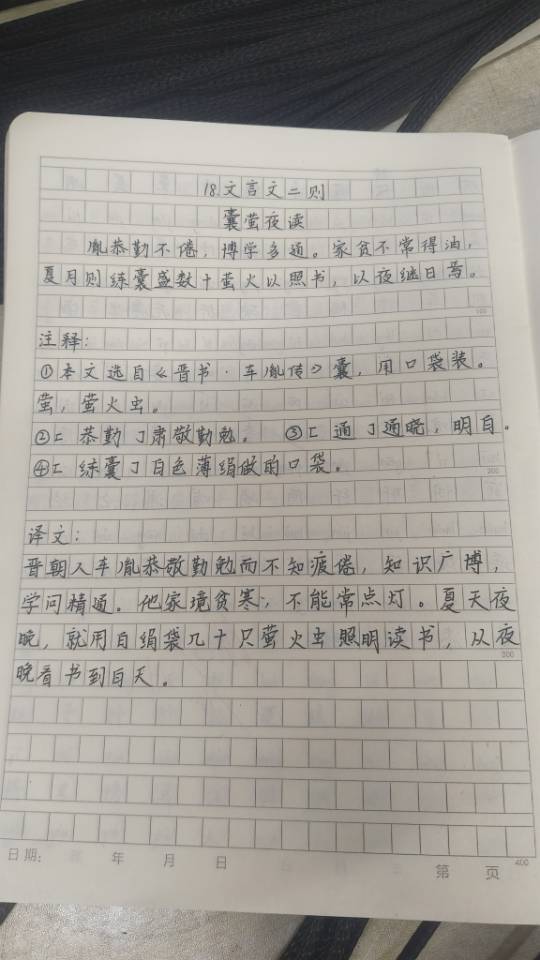 18.文言文二则
囊萤夜读
胤恭勤不倦，博学多通。家贫不常得油，
夏月则练囊盛数十萤火以照书，以夜继日焉。
100
注释：
①本文选自《晋书·车胤传》囊，用口袋装。
萤，萤火虫。
②[恭勤]肃敬勤勉。 ③[通]通晓，明白。
④[练囊]白色薄绢做的口袋。
200
译文：
晋朝人车胤恭敬勤勉而不知疲倦，知识广博，
学问精通。他家境贫寒，不能常点灯。夏天夜
晚，就用白绢袋几十只萤火虫照明读书，从夜
300
晚看书到白天。
400
日期： 年 月 日 第 页